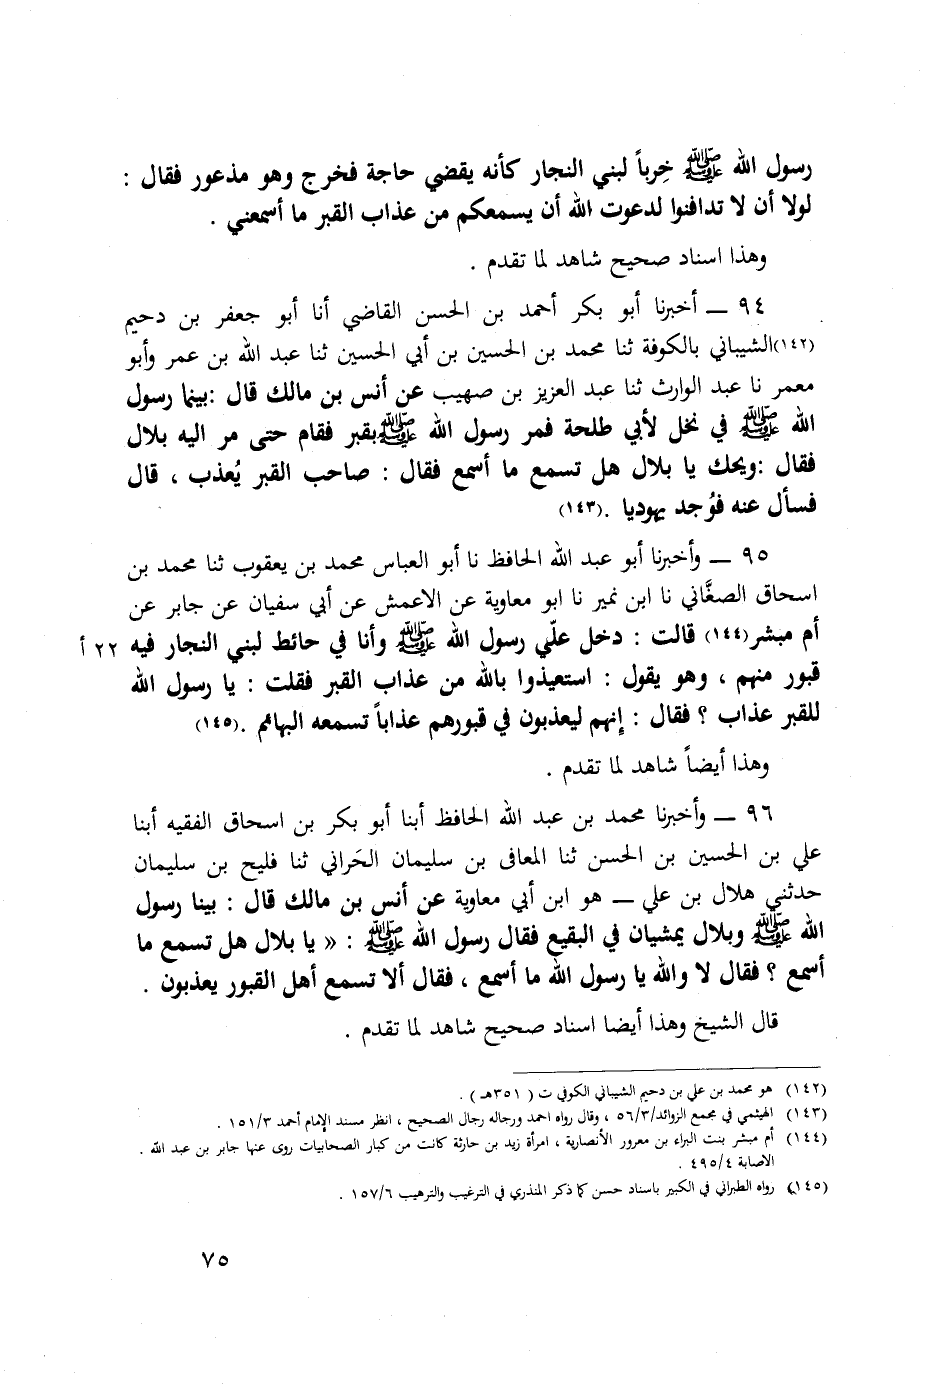 رسول الله ﷺ خِرباً لبني النجار كأنه يقضي حاجة فخرج وهو مذعور فقال :
لولا أن لا تدافنوا لدعوت الله أن يسمعكم من عذاب القبر ما أسمعني .
وهذا اسناد صحيح شاهد لما تقدم .
٩٤ ــ أخبرنا أبو بكر أحمد بن الحسن القاضي أنا أبو جعفر بن دحيم
(١٤٢)الشيباني بالكوفة ثنا محمد بن الحسين بن أبي الحسين ثنا عبد الله بن عمر وأبو
معمر نا عبد الوارث ثنا عبد العزيز بن صهيب عن أنس بن مالك قال :بينما رسول
الله ﷺ في نخل لأبي طلحة فمر رسول الله ﷺبقبر فقام حتى مر اليه بلال
فقال :ويحك يا بلال هل تسمع ما أسمع فقال : صاحب القبر يُعذب ، قال
فسأل عنه فوُجد يهوديا .(١٤٣)
٩٥ ــ وأخبرنا أبو عبد الله الحافظ نا أبو العباس محمد بن يعقوب ثنا محمد بن
اسحاق الصغَّاني نا ابن نمير نا ابو معاوية عن الاعمش عن أبي سفيان عن جابر عن
أم مبشر(١٤٤) قالت : دخل علّي رسول الله ﷺ وأنا في حائط لبني النجار فيه ٢٢ أ
قبور منهم ، وهو يقول : استعيذوا بالله من عذاب القبر فقلت : يا رسول الله
للقبر عذاب ؟ فقال : إنهم ليعذبون في قبورهم عذاباً تسمعه البهائم .(١٤٥)
وهذا أيضاً شاهد لما تقدم .
٩٦ ــ وأخبرنا محمد بن عبد الله الحافظ أبنا أبو بكر بن اسحاق الفقيه أبنا
علي بن الحسين بن الحسن ثنا المعافى بن سليمان الحَراني ثنا فليح بن سليمان
حدثني هلال بن علي ــ هو ابن أبي معاوية عن أنس بن مالك قال : بينا رسول
الله ﷺ وبلال يمشيان في البقيع فقال رسول الله ﷺ : « يا بلال هل تسمع ما
أسمع ؟ فقال لا والله يا رسول الله ما أسمع ، فقال ألا تسمع أهل القبور يعذبون .
قال الشيخ وهذا أيضا اسناد صحيح شاهد لما تقدم .
(١٤٢) هو محمد بن علي بن دحيم الشيباني الكوفي ت ( ٣٥١هـ ) .
(١٤٣) الهيثمي في مجمع الزوائد/٥٦/٣ ، وقال رواه احمد ورجاله رجال الصحيح ، انظر مسند الإمام أحمد ١٥١/٣ .
(١٤٤) أم مبشر بنت البراء بن معرور الأنصارية ، امرأة زيد بن حارثة كانت من كبار الصحابيات روى عنها جابر بن عبد الله .
الاصابة ٤٩٥/٤ .
(١٤٥) رواه الطبراني في الكبير باسناد حسن كما ذكر المنذري في الترغيب والترهيب ١٥٧/٦ .
٧٥